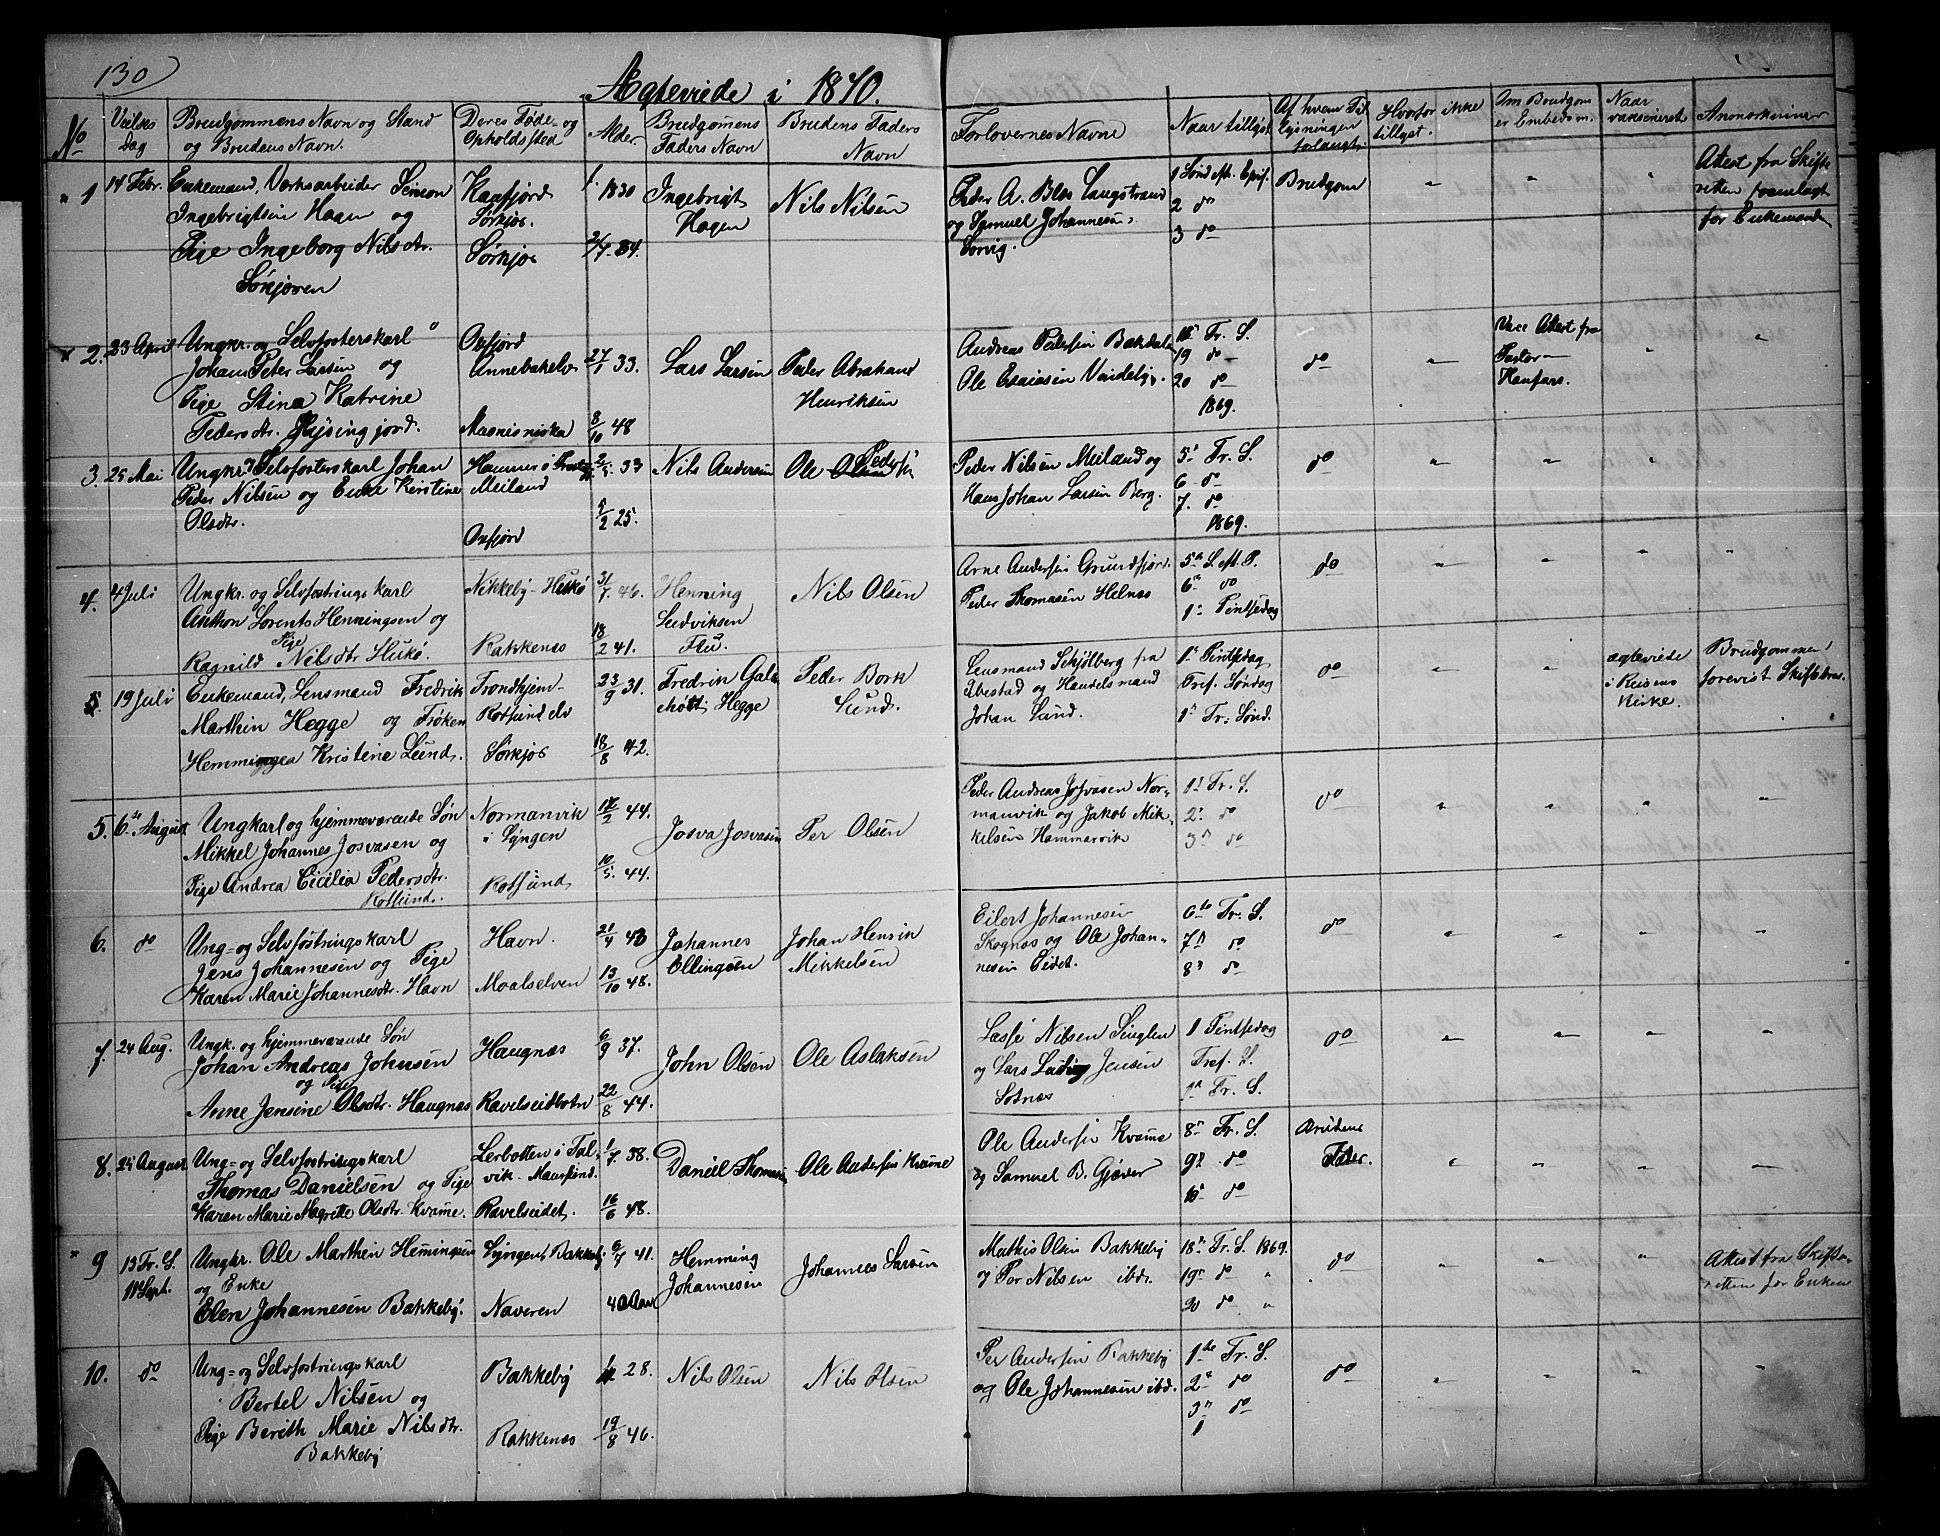 130
Ægteviede i 1870.
No
Vielses Dag
Brudgommens Navn og Stand og Brudens Navn.
Deres Føde- og Opholdsted
Alder
Brudgomens Faders Navn
Brudens Faders Navn
Forlovernes Navne
Naar tillyst
Af hvem Tillysningen forlangt
Hvorfor ikke tillyst.
Om Brudgom er Embedsm.
Naar vaksineret
Anmærkninger
1 14 Febr. Enkemand, Værksarbeider Simon
Ingebrigtsen Hagen og
Pige Ingeborg Nilsdtr.
Sørkjosen
Kaafjord
Sørkjos.
Sørkjos
1830
34.
Ingebrigt
Hagen
Nils Nilsen
Peder A. Blos Langstrand
og Samuel Johannesen
Sorvig.
1 Sønd. eft. Epif.
2 do
3 do
Brudgom
Attest fra Skifte-
retten fremlagt
for Enkemanden
2. 23 April Ungkr. og Selvfosterskarl
Johan Peter Larsen og
Pige Stina Katrine
Pedersdtr.
Oxfjord
Masnisniska
27/1 33.
8/10 48
Lars Larsen
Peder Abraham
Henriksen
Andreas Pedersen Bakdalen
Ole Esaiasen
Tr. S.
19 do
20 do
1869.
do
Attest fra
Pastor
3. 25 Mai Ungkr. Selvfosterskarl Johan
Peder Nilsen og Enke Kirstine
Olsdtr.
Meiland
Oxfjord
33
25.
Nils Andersen
Ole Pedersen
Peder Nilsen Meiland og
Hans Johan Larsen Berg.
5te Tr. S.
6 do
7. do
1869.
do
4. 4 Juli Ungkr. og Selvfostringskarl
Anthon Lorents Henningsen og
Pige
Ragnild Nilsdtr
Nikkeby
Rakkenæs
31/7 46.
18/2 41.
Henning
Ludviksen
Nils Olsen
Arne Andersen Grundfjord.
Peder Thomasen Helnes
5te S. eft. P.
6te do
1ste Pintsedag
do
5. 19 Juli Enkemand, Lensmand Fredrik
Marthin Hegge og Frøken
Hemmingea Kristine Lund.
Trondhjem-
Rotsundelv
Sørkjos
23/9 31.
18/8 42.
Fredrik
Hegge
Peder Bork
Lund.
Lensmand Schjølberg fra
Ibestad og Handelsmand
Johan Lund.
1ste Pintsedag
Tref. Søndag
1ste Tr. Sønd.
do
ægteviede
i Reisens
Kirke.
Brudgommen
forevist Skiftebrev.
5. 6te August Ungkarl og hjemmeværende Søn
Mikkel Johannes Josvasen og
Pige Andrea Cicilia Pedersdtr.
Rotsund.
Normanvik
i Lyngen
Rotsund
44.
10/5. 44.
Josva Josvasen
Per Olsen
Peder Andreas Josvasen Nor-
manvik og Jakob Mik-
kelsen Hammervik
1ste Tr. S.
2. do
3. do
do
6. do Ung- og Selvfostringskarl
Jens Johannesen og Pige
Karen Marie Johannesdtr. Havn
Havn.
Maalselven
21/4 43
13/10 48.
Johannes
Ellingsen
Johan Henrik
Mikkelsen
Eilert Johannesen
Skognæs og Ole Johan-
nesen Eidet.
6te Tr. S.
7. do
8. do
do
7. 24 Aug. Ungk. og hjemmeværende Søn
Johan Andreas Johnsen
og Pige
Anne Jensine Olsdtr. Haugnæs
Haugnæs
Ravelseidbotn
6/9 37.
22/8 44.
John Olsen
Ole Aslaksen
Lasse Nilsen
og Lars Ludvig Jensen
Sotnæs
1 Pintsedag
Tref. S.
1ste Tr. S.
do
8. 25 August Ung- og Selvfostringskarl
Thomas Danielsen og Pige
Karen Marie Magrette Olsdtr. Kvame.
Lerbotten i Tal-
vik. Maursund.
Ravelseidet.
1/7. 38.
16/6 48.
Daniel Thomasen
Ole Andersen Kvame
Ole Andersen Kvame
og Samuel B. Gjøver
8. Tr. S.
9. do
10. do
Brudens
Fader.
9 13 Tr. S.
18 Sept.
Ungkr. Ole Marthin Hemingsen
og Enke
Elen Johannesen Bakkeby.
Lyngen, Bakkeby
Naveren
6/7 41.
40 Aar
Hemming
Johannesen
Johannes Larsen
Mathis Olsen Bakkeby
og Per Nilsen ibd.
18. Tr. S. 1869.
19. do "
20 do "
do
Attest fra Skifte-
retten for Enken
10. do Ung- og Selvfostringskarl
Bertel Nilsen og
Pige Berith Marie Nilsdtr.
Bakkeby
Bakkeby
Rakkenæs
28.
19/8 46.
Nils Olsen
Nils Olsen
Per Andersen Bakkeby
og Ole Johannesen ibd.
1ste Tr. S.
2. do
3. do
do